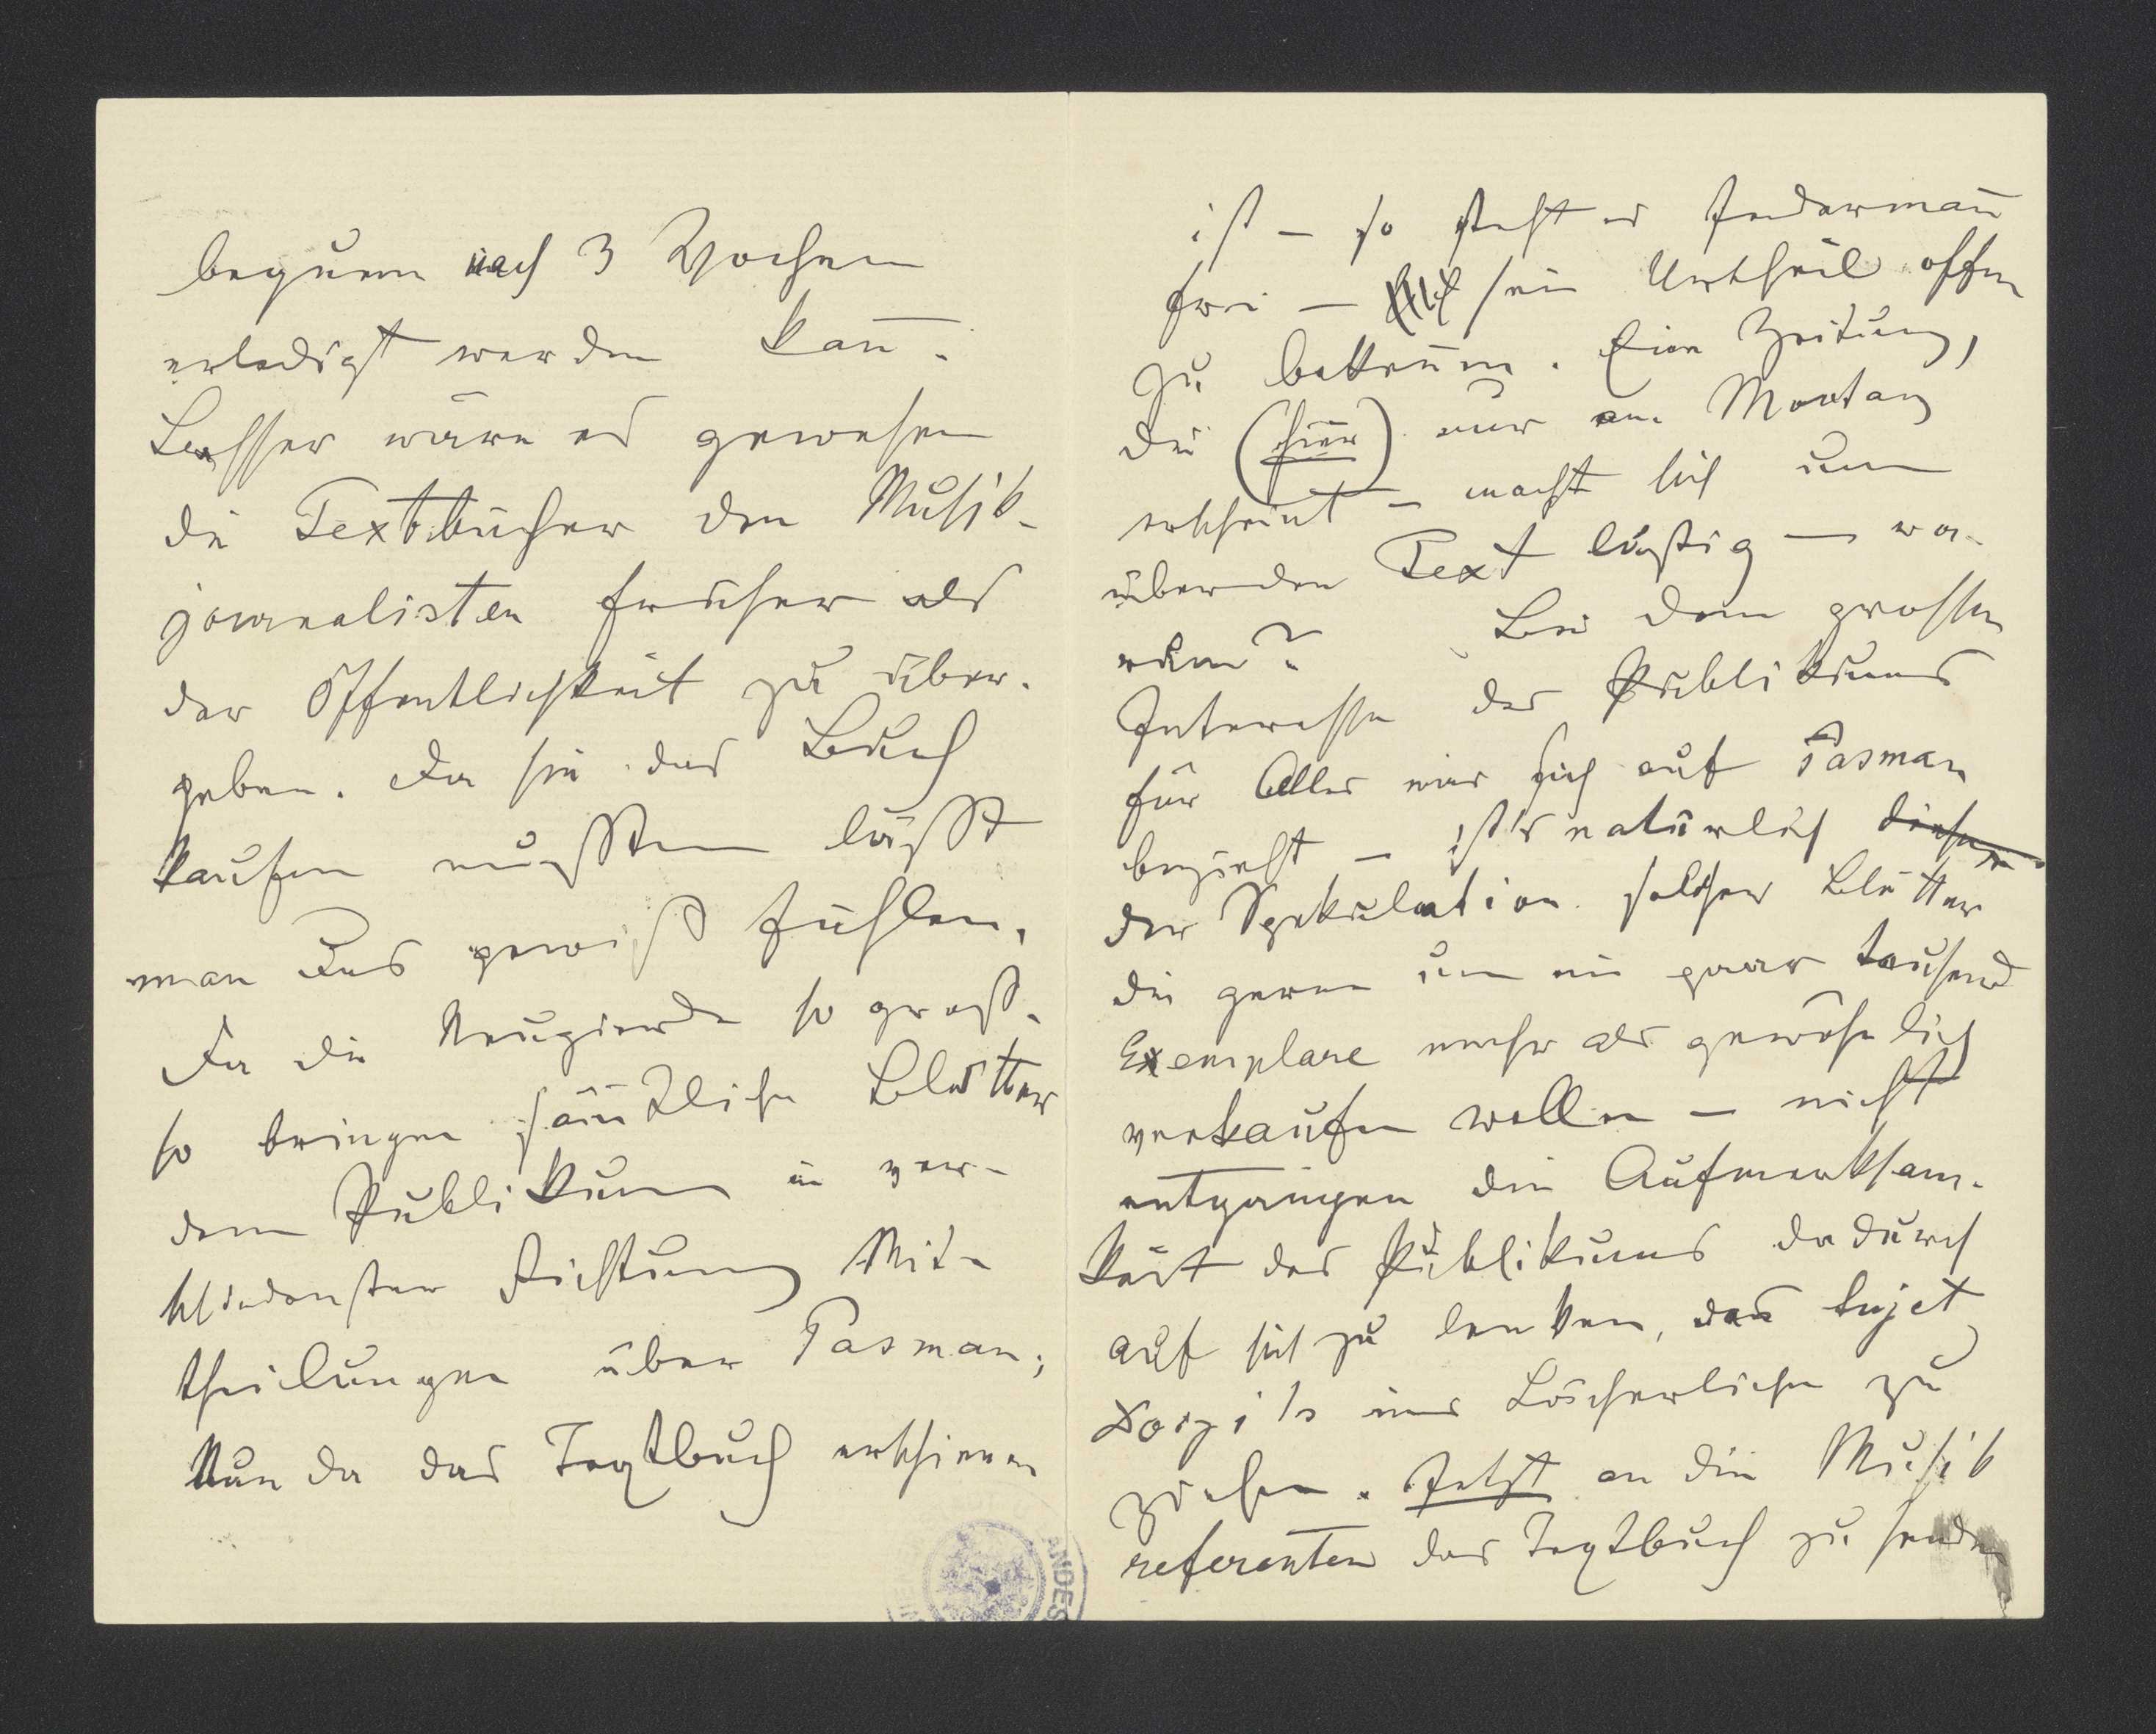 bequem nach 3 Wochen
erledigt werden kan̄.
Besser wäre es gewesen
die Textbücher den Musik-
journalisten früher als
der Öffentlichkeit zu über-
geben. Da sie das Buch
kaufen mussten läßt
man Eus gewiß fühlen.
Da die Neugierde so groß.
so bringen säm̄tliche Blätter
dem Publikum in ver-
schiedenster Richtung Mit-
theilungen über Pasman;
Nun da das Textbuch erschienen
ist – so steht es Jedermañ
frei – sein Urtheil offen
zu bekeñen. Eine Zeitung,
die (hier) nur am Montag
erscheint – macht sich um
über den Text lustig – wa-
rum? Bei dem grossen
Interesse des Publikums
für Alles was sich auf Pasman
bezieht – ist's natürlich dieser
der Spekulation solcher Blätter
die gerne um ein paar tausend
Exemplare mehr als gewöhnlich
verkaufen wollen – nicht
entgangen die Aufmerksam-
keit des Publikums dadurch
auf sich zu lenken, das Sujet
Doczi's ins Lächerliche zu
ziehen. Jetzt an die Musik
referenten das Textbuch zu senden